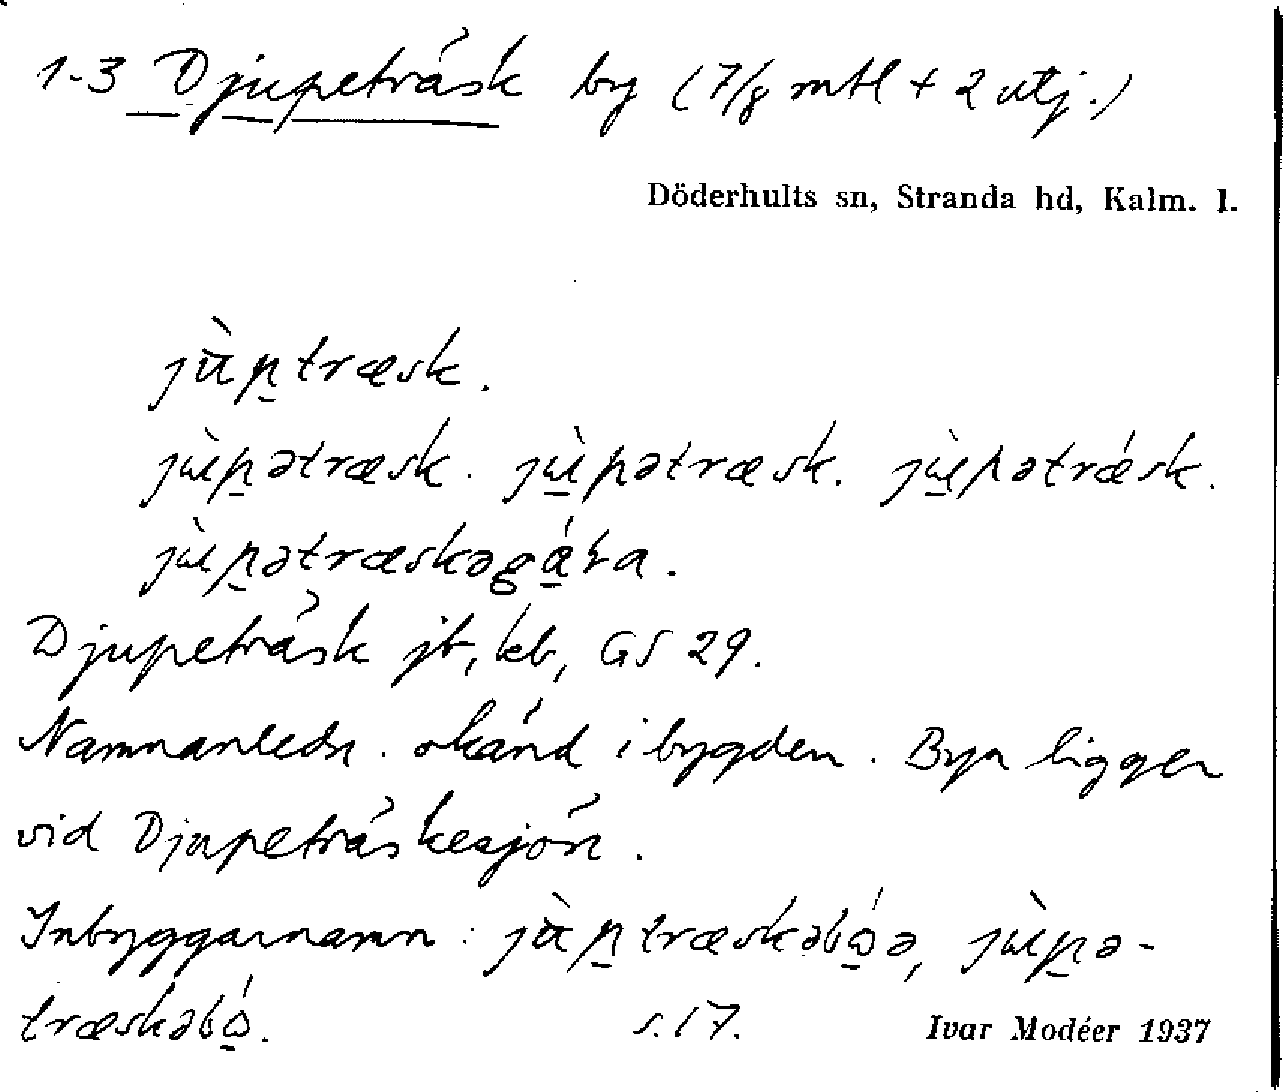 1-3 Djupeträsk by (7/8 mtl + 2 utj.)
Döderhults sn, Stranda hd, Kalm. l.
jùp̱træsk.
jùp̱ətræsk. jù̱pətræsk. jù̱pətrǽsk.
jùp̱ətræskəgá̱ra.
Djupeträsk jb, kb, GS 29.
Namnanledn. okänd i bygden. Byn ligger
vid Djupeträskesjön.
Inbyggarnamn: jùp̱træskəbó̱ə, jùp̱ə-
træskəbó̱.
s. 17.
Ivar Modéer 1937